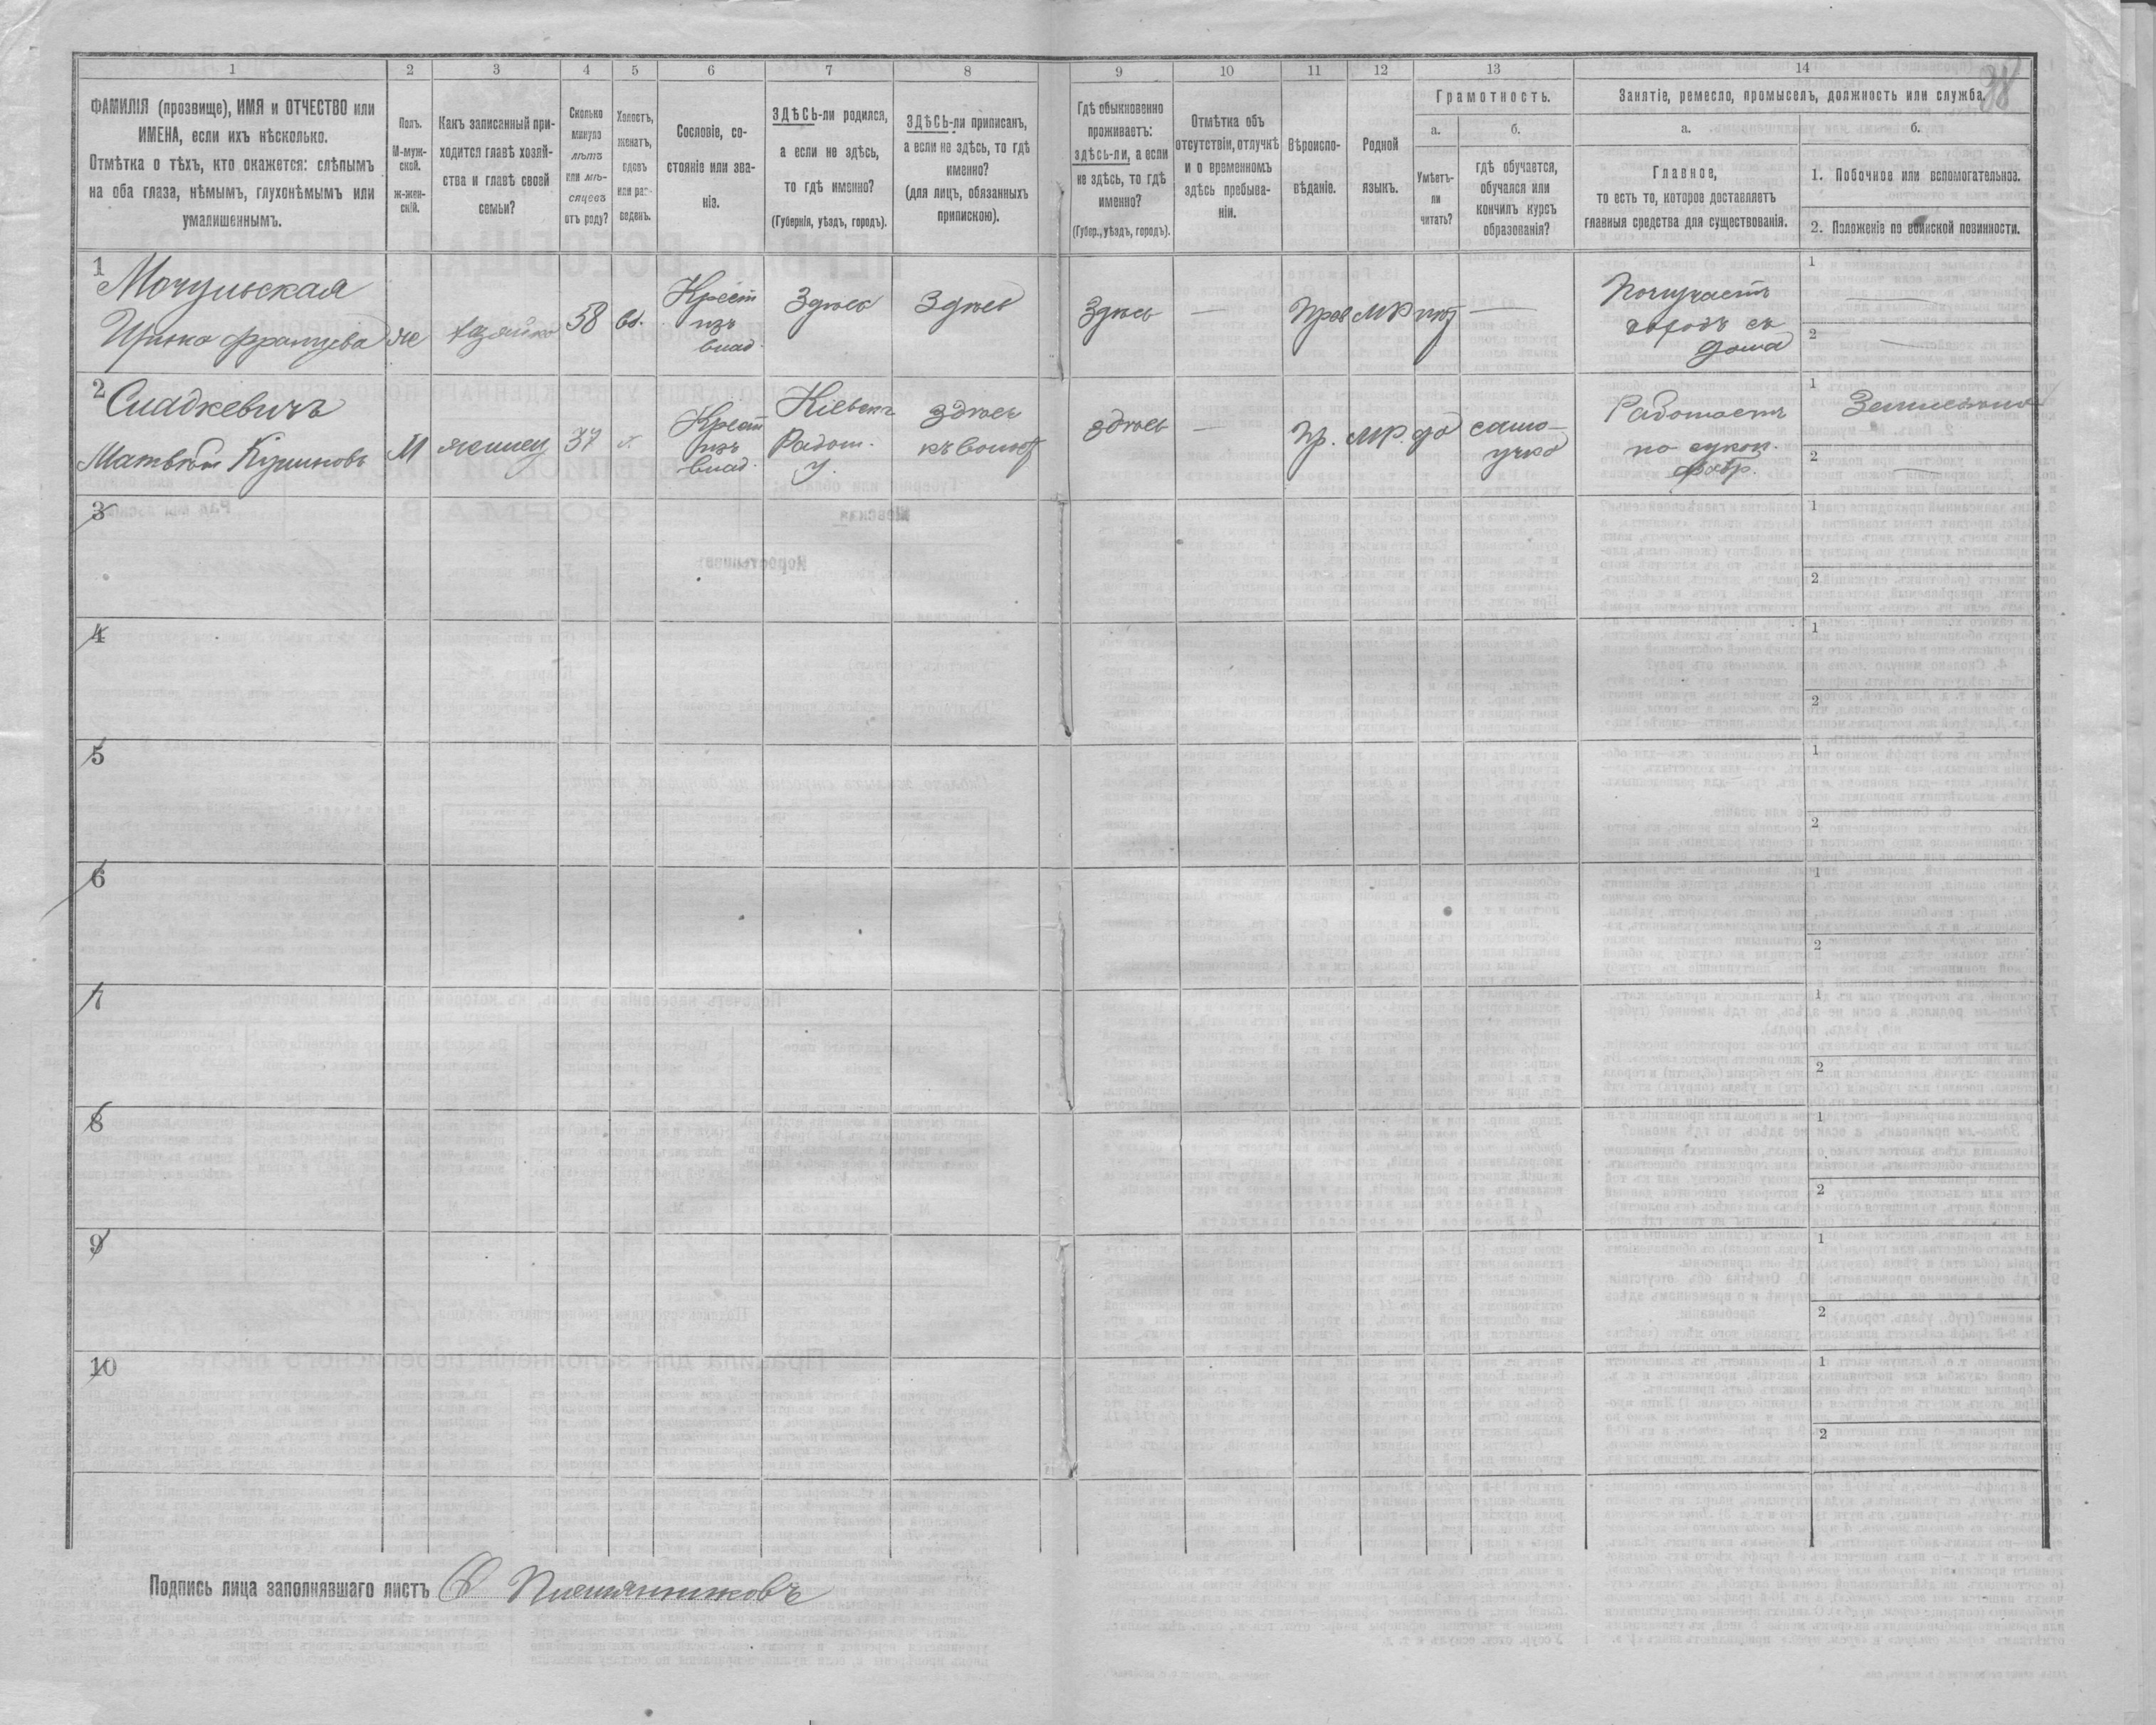 1 2 3 4 5 6 7 8 9 10 11 12 13 14
38
ФАМИЛІЯ (прозвище), ИМЯ и ОТЧЕСТВО или
ИМЕНА, если ихъ нѣсколько.
Отмѣтка о тѣхъ, кто окажется: слѣпымъ
на оба глаза, нѣмымъ, глухонѣмымъ или
умалишеннымъ.
Полъ.
М-муж-
ской.
ж-жен-
скій.
Какъ записанный при-
ходится главѣ хозяй-
ства и главѣ своей
семьи?
Сколько
минуло
лѣтъ
или мѣ-
сяцевъ
отъ роду?
Холостъ,
женатъ,
вдовъ
или раз-
веденъ.
Сословіе, со-
стояніе или зва-
ніе.
ЗДѢСЬ-ли родился,
а если не здѣсь,
то гдѣ именно?
(Губернія, уѣздъ, городъ).
ЗДѢСЬ-ли приписанъ,
а если не здѣсь, то гдѣ
именно?
(для лицъ, обязанныхъ
припискою).
Гдѣ обыкновенно
проживаетъ:
здѣсь-ли, а если
не здѣсь, то гдѣ
именно?
(Губер., уѣздъ, городъ).
Отмѣтка объ
отсутствіи, отлучкѣ
и о временномъ
здѣсь пребыва-
ніи.
Вѣроиспо-
вѣданіе.
Родной
языкъ.
Грамотность.
а.
Умѣетъ-
ли
читать?
б.
гдѣ обучается,
обучался или
кончилъ курсъ
образованія?
Занятіе, ремесло, промыселъ, должность или служба.
а.
Главное,
то есть то, которое доставляетъ
главныя средства для существованія.
б.
1. Побочное или вспомогательное.
2. Положеніе по воинской повинности.
1
Мочульская
Францева
же
хазяйка
58
вд.
Крест
изъ
влад.
Здѣсь
Здѣсь
Здѣсь
—
Прав
МР
нѣт
—
Получаетъ
доходъ съ
дома
1 —
2 —
2
Сладкевичъ
М
жилец
37
х
Крест
изъ
влад.
Кіевск
Радом.
у.
здѣсь
къ волост
здѣсь
—
Пр.
МР.
да
само-
учка
Работаетъ
на сукон.
фабр.
1
2 —
3
1
2
4
1
2
5
1
2
6
1
2
7
1
2
8
1
2
9
1
2
10
1
2
Подпись лица заполнявшаго листъ Племянниковъ